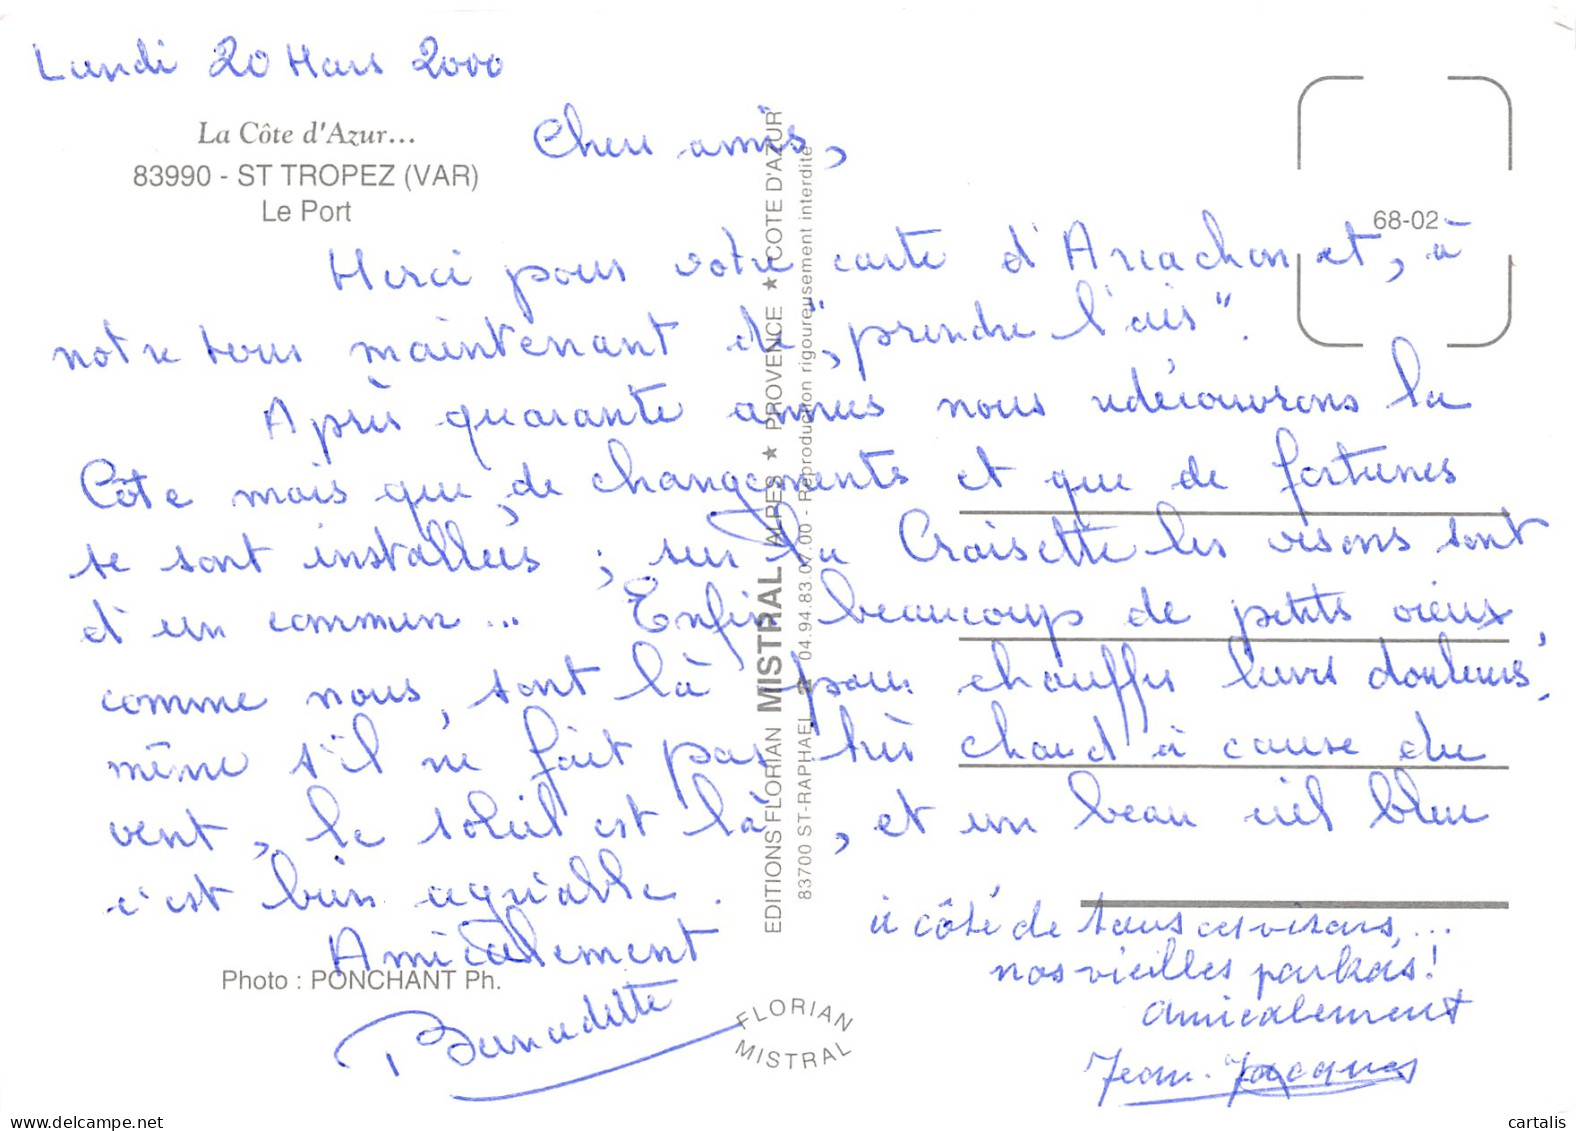 Lundi 20 Mars 2000
La Côte d'Azur...
83990 - ST TROPEZ (VAR)
Le Port
68-02
Chers amis,
Merci pour votre carte d'Arcachon et, à
notre tour maintenant de "prendre l'air".
Après quarante années nous redécouvrons la
Côte mais que de changements et que de fortunes
se sont installées ; sur la Croisette les visons sont
d'un commun... Enfin beaucoup de petits vieux,
comme nous, sont là pour chauffer leurs douleurs,
même s'il ne fait pas très chaud à cause du
vent, le soleil est là, et un beau ciel bleu
c'est bien agréable.
Amicalement
Bernadette
à côté de tous ces visons...
nos vieilles parkas!
amicalement
Jean-Jacques
Photo : PONCHANT Ph.
EDITIONS FLORIAN MISTRAL ALPES ★ PROVENCE ★ COTE D'AZUR
83700 ST-RAPHAEL ☎ 04.94.83.07.00 - Reproduction rigoureusement interdite
FLORIAN
MISTRAL
delcampe.net
cartalis